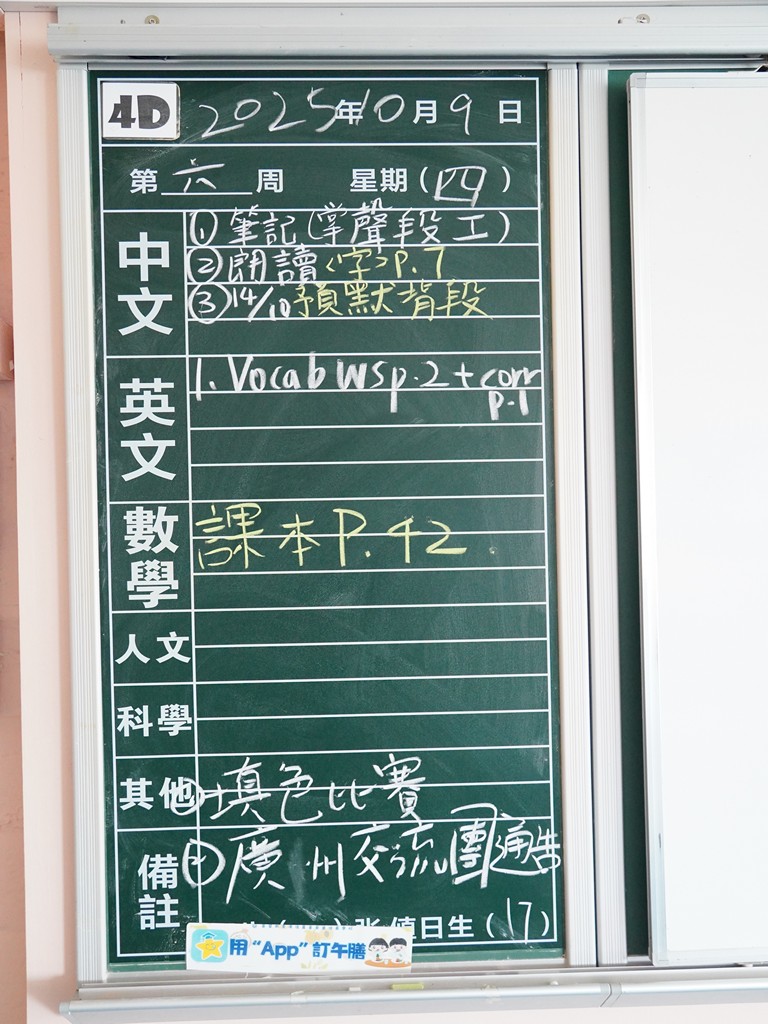 4D 2025年10月9日
第六周 星期(四)
中文
①筆記(掌聲段工)
②朗讀〈字〉P.7
③14/10預默背段
英文
1. Vocab WS p.2 + corr
p.1
數學
課本P.42
人文
科學
其他
①填色比賽
備註
②廣州交流團通告
值日生(17)
用“App”訂午膳